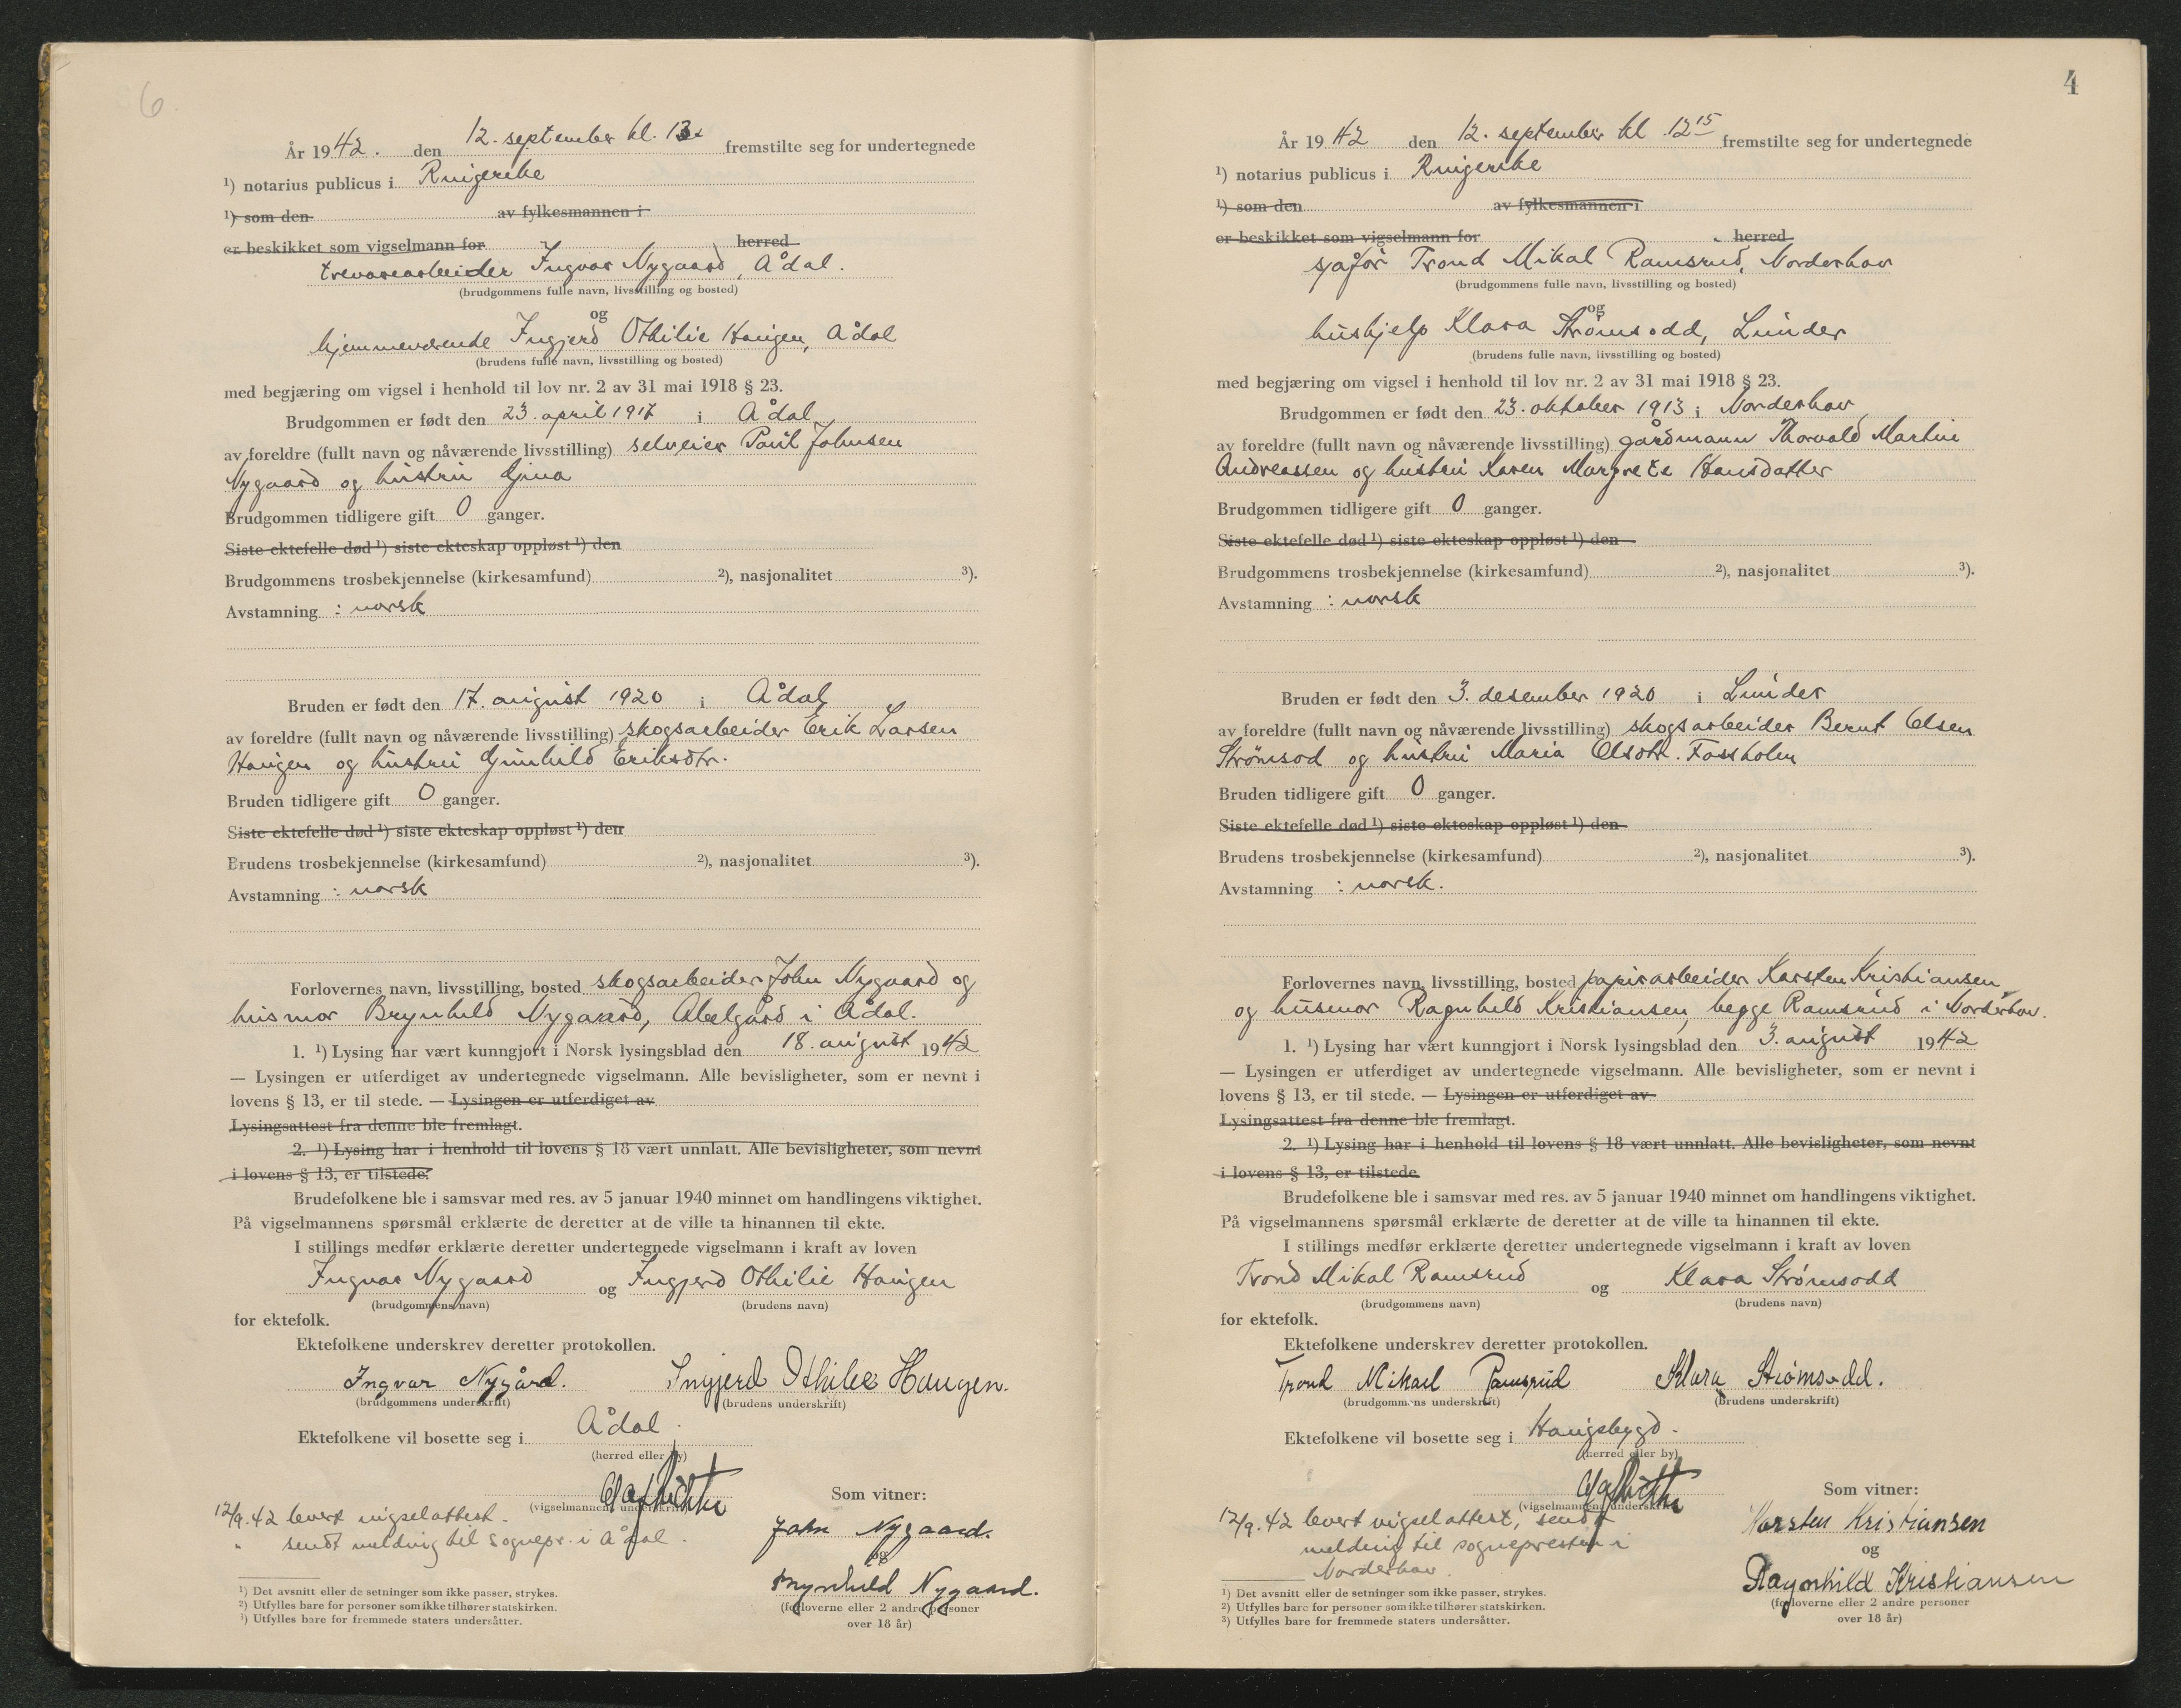 6.
År 1942. den 12. september kl. 13 fremstilte seg for undertegnede
¹) notarius publicus i Ringerike
¹) som den av fylkesmannen i
er beskikket som vigselmann for herred
trevarearbeider Ingvar Nygaard, Ådal.
(brudgommens fulle navn, livsstilling og bosted)
og
hjemmeværende Ingjerd Othilie Haugen, Ådal
(brudens fulle navn, livsstilling og bosted)
med begjæring om vigsel i henhold til lov nr. 2 av 31 mai 1918 § 23.
Brudgommen er født den 23. april 1917 i Ådal
av foreldre (fullt navn og nåværende livsstilling) selveier Paul Johnsen
Nygaard og hustru Gina
Brudgommen tidligere gift 0 ganger.
Siste ektefelle død ¹) siste ekteskap oppløst ¹) den
Brudgommens trosbekjennelse (kirkesamfund) ²), nasjonalitet ³).
Avstamning : norsk
Bruden er født den 17. august 1920 i Ådal
av foreldre (fullt navn og nåværende livsstilling) skogsarbeider Erik Larsen
Haugen og hustru Gunhild Eriksdtr.
Bruden tidligere gift 0 ganger.
Siste ektefelle død ¹) siste ekteskap oppløst ¹) den
Brudens trosbekjennelse (kirkesamfund) ²), nasjonalitet ³).
Avstamning : norsk
Forlovernes navn, livsstilling, bosted skogsarbeider John Nygaard og
husmor Brynhild Nygaard, Abelgård i Ådal.
1. ¹) Lysing har vært kunngjort i Norsk lysingsblad den 18. august 1942
— Lysingen er utferdiget av undertegnede vigselmann. Alle bevisligheter, som er nevnt i
lovens § 13, er til stede. — Lysingen er utferdiget av
Lysingsattest fra denne ble fremlagt.
2. ¹) Lysing har i henhold til lovens § 18 vært unnlatt. Alle bevisligheter, som nevnt
i lovens § 13, er tilstede.
Brudefolkene ble i samsvar med res. av 5 januar 1940 minnet om handlingens viktighet.
På vigselmannens spørsmål erklærte de deretter at de ville ta hinannen til ekte.
I stillings medfør erklærte deretter undertegnede vigselmann i kraft av loven
Ingvar Nygaard og Ingjerd Othilie Haugen
(brudgommens navn) (brudens navn)
for ektefolk.
Ektefolkene underskrev deretter protokollen.
Ingvar Nygård. Ingjerd Othilie Haugen.
(brudgommens underskrift) (brudens underskrift)
Ektefolkene vil bosette seg i Ådal.
(herred eller by)
(vigselmannens underskrift)
12/9.42 levert vigselattest.
" sendt melding til sognepr. i Ådal.
Som vitner:
John Nygaard.
og
Brynhild Nygaard.
(forloverne eller 2 andre personer
over 18 år)
¹) Det avsnitt eller de setninger som ikke passer, strykes.
²) Utfylles bare for personer som ikke tilhører statskirken.
³) Utfylles bare for fremmede staters undersåtter.
4
År 1942 den 12. september kl. 12¹⁵ fremstilte seg for undertegnede
¹) notarius publicus i Ringerike
¹) som den av fylkesmannen i
er beskikket som vigselmann for herred
sjåfør Trond Mikal Ramsrud, Norderhov
(brudgommens fulle navn, livsstilling og bosted)
og
hushjelp Klara Strømsodd, Lunder
(brudens fulle navn, livsstilling og bosted)
med begjæring om vigsel i henhold til lov nr. 2 av 31 mai 1918 § 23.
Brudgommen er født den 23. oktober 1913 i Norderhov
av foreldre (fullt navn og nåværende livsstilling) gårdmann Thorvald Martin
Andreassen og hustru Karen Margrete Hansdatter
Brudgommen tidligere gift 0 ganger.
Siste ektefelle død ¹) siste ekteskap oppløst ¹) den
Brudgommens trosbekjennelse (kirkesamfund) ²), nasjonalitet ³).
Avstamning : norsk
Bruden er født den 3. desember 1920 i Lunder
av foreldre (fullt navn og nåværende livsstilling) skogsarbeider Bernt Olsen
Strømsod og hustru Maria Olsdtr. Fossholm
Bruden tidligere gift 0 ganger.
Siste ektefelle død ¹) siste ekteskap oppløst ¹) den
Brudens trosbekjennelse (kirkesamfund) ²), nasjonalitet ³).
Avstamning : norsk.
Forlovernes navn, livsstilling, bosted papirarbeider Karsten Kristiansen
og husmor Ragnhild Kristiansen, begge Ramsrud i Norderhov.
1. ¹) Lysing har vært kunngjort i Norsk lysingsblad den 3. august 1942
— Lysingen er utferdiget av undertegnede vigselmann. Alle bevisligheter, som er nevnt i
lovens § 13, er til stede. — Lysingen er utferdiget av
Lysingsattest fra denne ble fremlagt.
2. ¹) Lysing har i henhold til lovens § 18 vært unnlatt. Alle bevisligheter, som nevnt
i lovens § 13, er tilstede.
Brudefolkene ble i samsvar med res. av 5 januar 1940 minnet om handlingens viktighet.
På vigselmannens spørsmål erklærte de deretter at de ville ta hinannen til ekte.
I stillings medfør erklærte deretter undertegnede vigselmann i kraft av loven
Trond Mikal Ramsrud og Klara Strømsodd
(brudgommens navn) (brudens navn)
for ektefolk.
Ektefolkene underskrev deretter protokollen.
Trond Mikael Ramsrud Klara Strømsodd.
(brudgommens underskrift) (brudens underskrift)
Ektefolkene vil bosette seg i Haugsbygd.
(herred eller by)
(vigselmannens underskrift)
12/9.42 levert vigselattest, sendt
melding til sognepresten i
Norderhov.
Som vitner:
Karsten Kristiansen
og
Ragnhild Kristiansen
(forloverne eller 2 andre personer
over 18 år)
¹) Det avsnitt eller de setninger som ikke passer, strykes.
²) Utfylles bare for personer som ikke tilhører statskirken.
³) Utfylles bare for fremmede staters undersåtter.